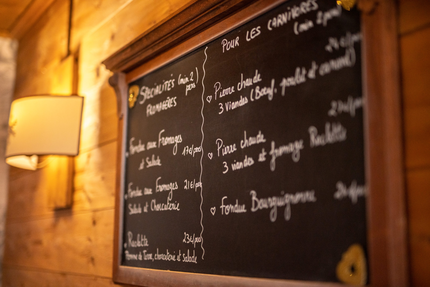 SPÉCIALITÉS (min 2 pers)
FROMAGÈRES
Fondue aux Fromages
et Salade
Fondue aux Fromages 21€/pers
Salade et Charcuterie
Raclette 23€/pers
Pomme de Terre, charcuterie et Salade
POUR LES CARNIVORES
(min 2 pers)
Pierre chaude
3 Viandes (Bœuf, poulet et canard)
Pierre chaude
3 viandes et fromage Raclette
Fondue Bourguignonne